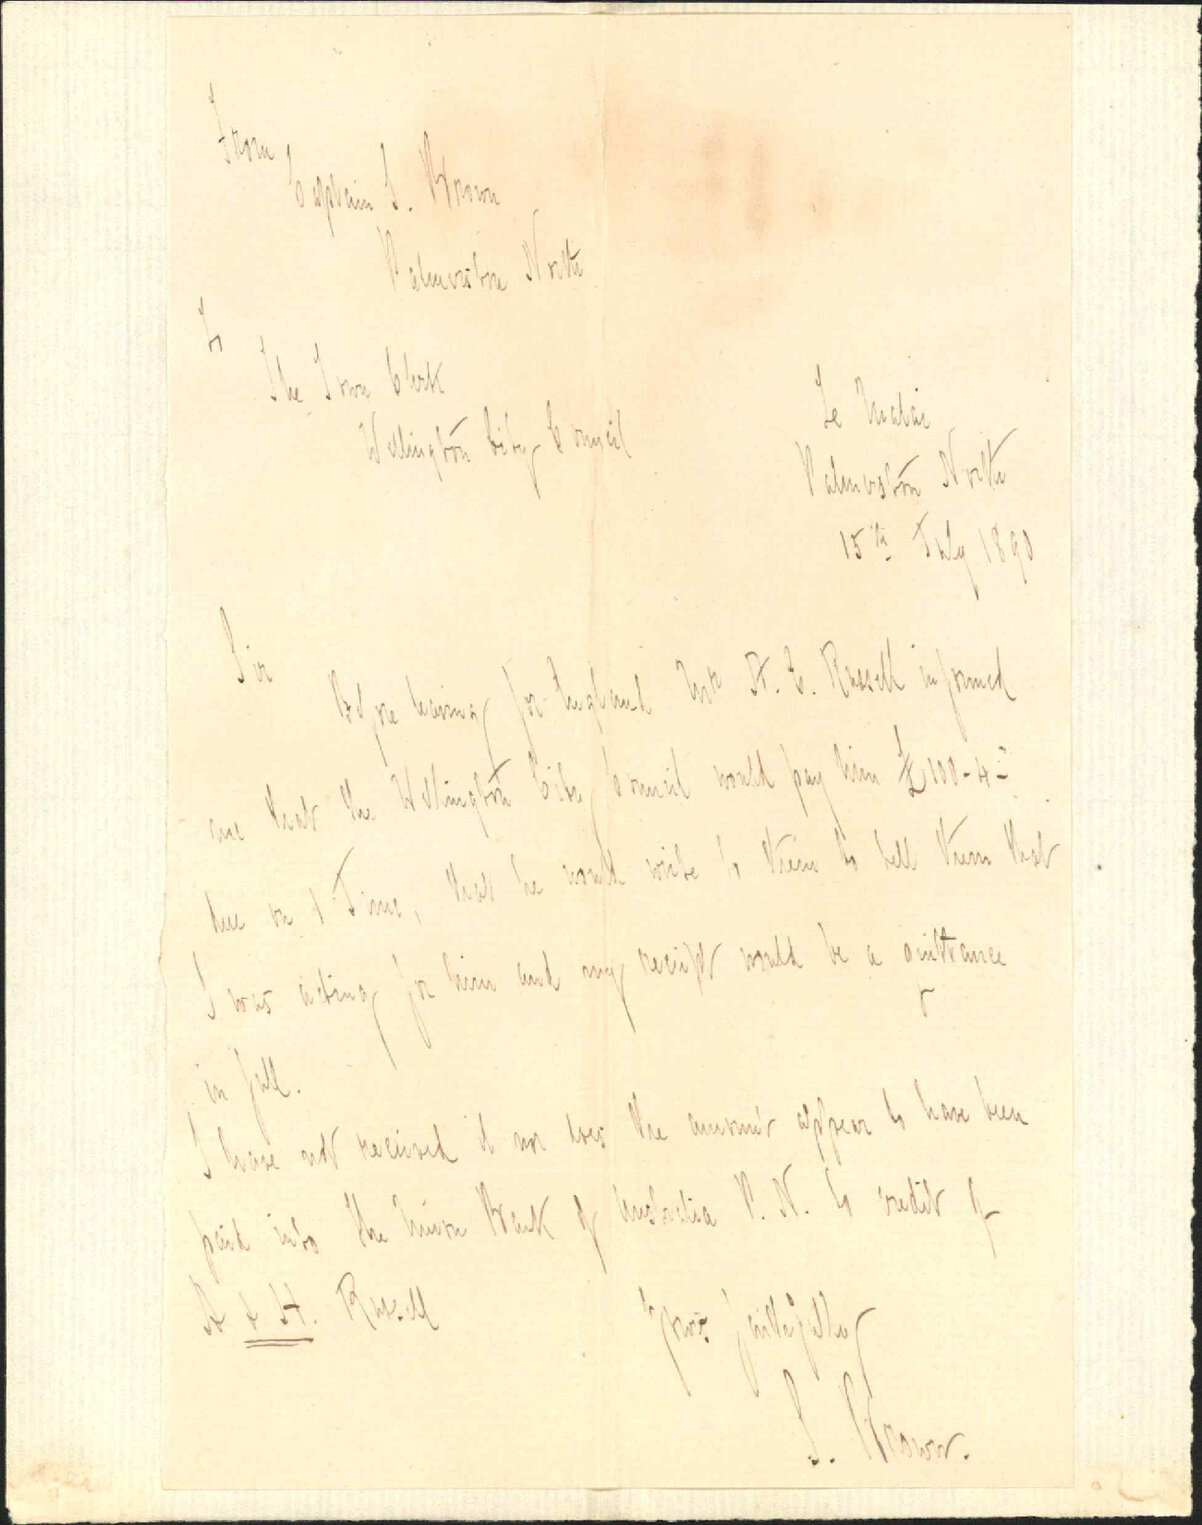 From
Captain L. Brown
Palmerston North
To
The Town Clerk
Wellington City Council
Te Matai
Palmerston North
15th July 1890
Sir
Before leaving for England Mr H. E. Russell informed
me that the Wellington City Council would pay him £100-4-
due on 1 June, that he would write to them to tell them that
I was acting for him and my receipt would be a quittance
in full.
I have not received it nor does the amount appear to have been
paid into the Union Bank of Australia P. N. to credit of
A & H. Russell
Yours faithfully
L. Brown.